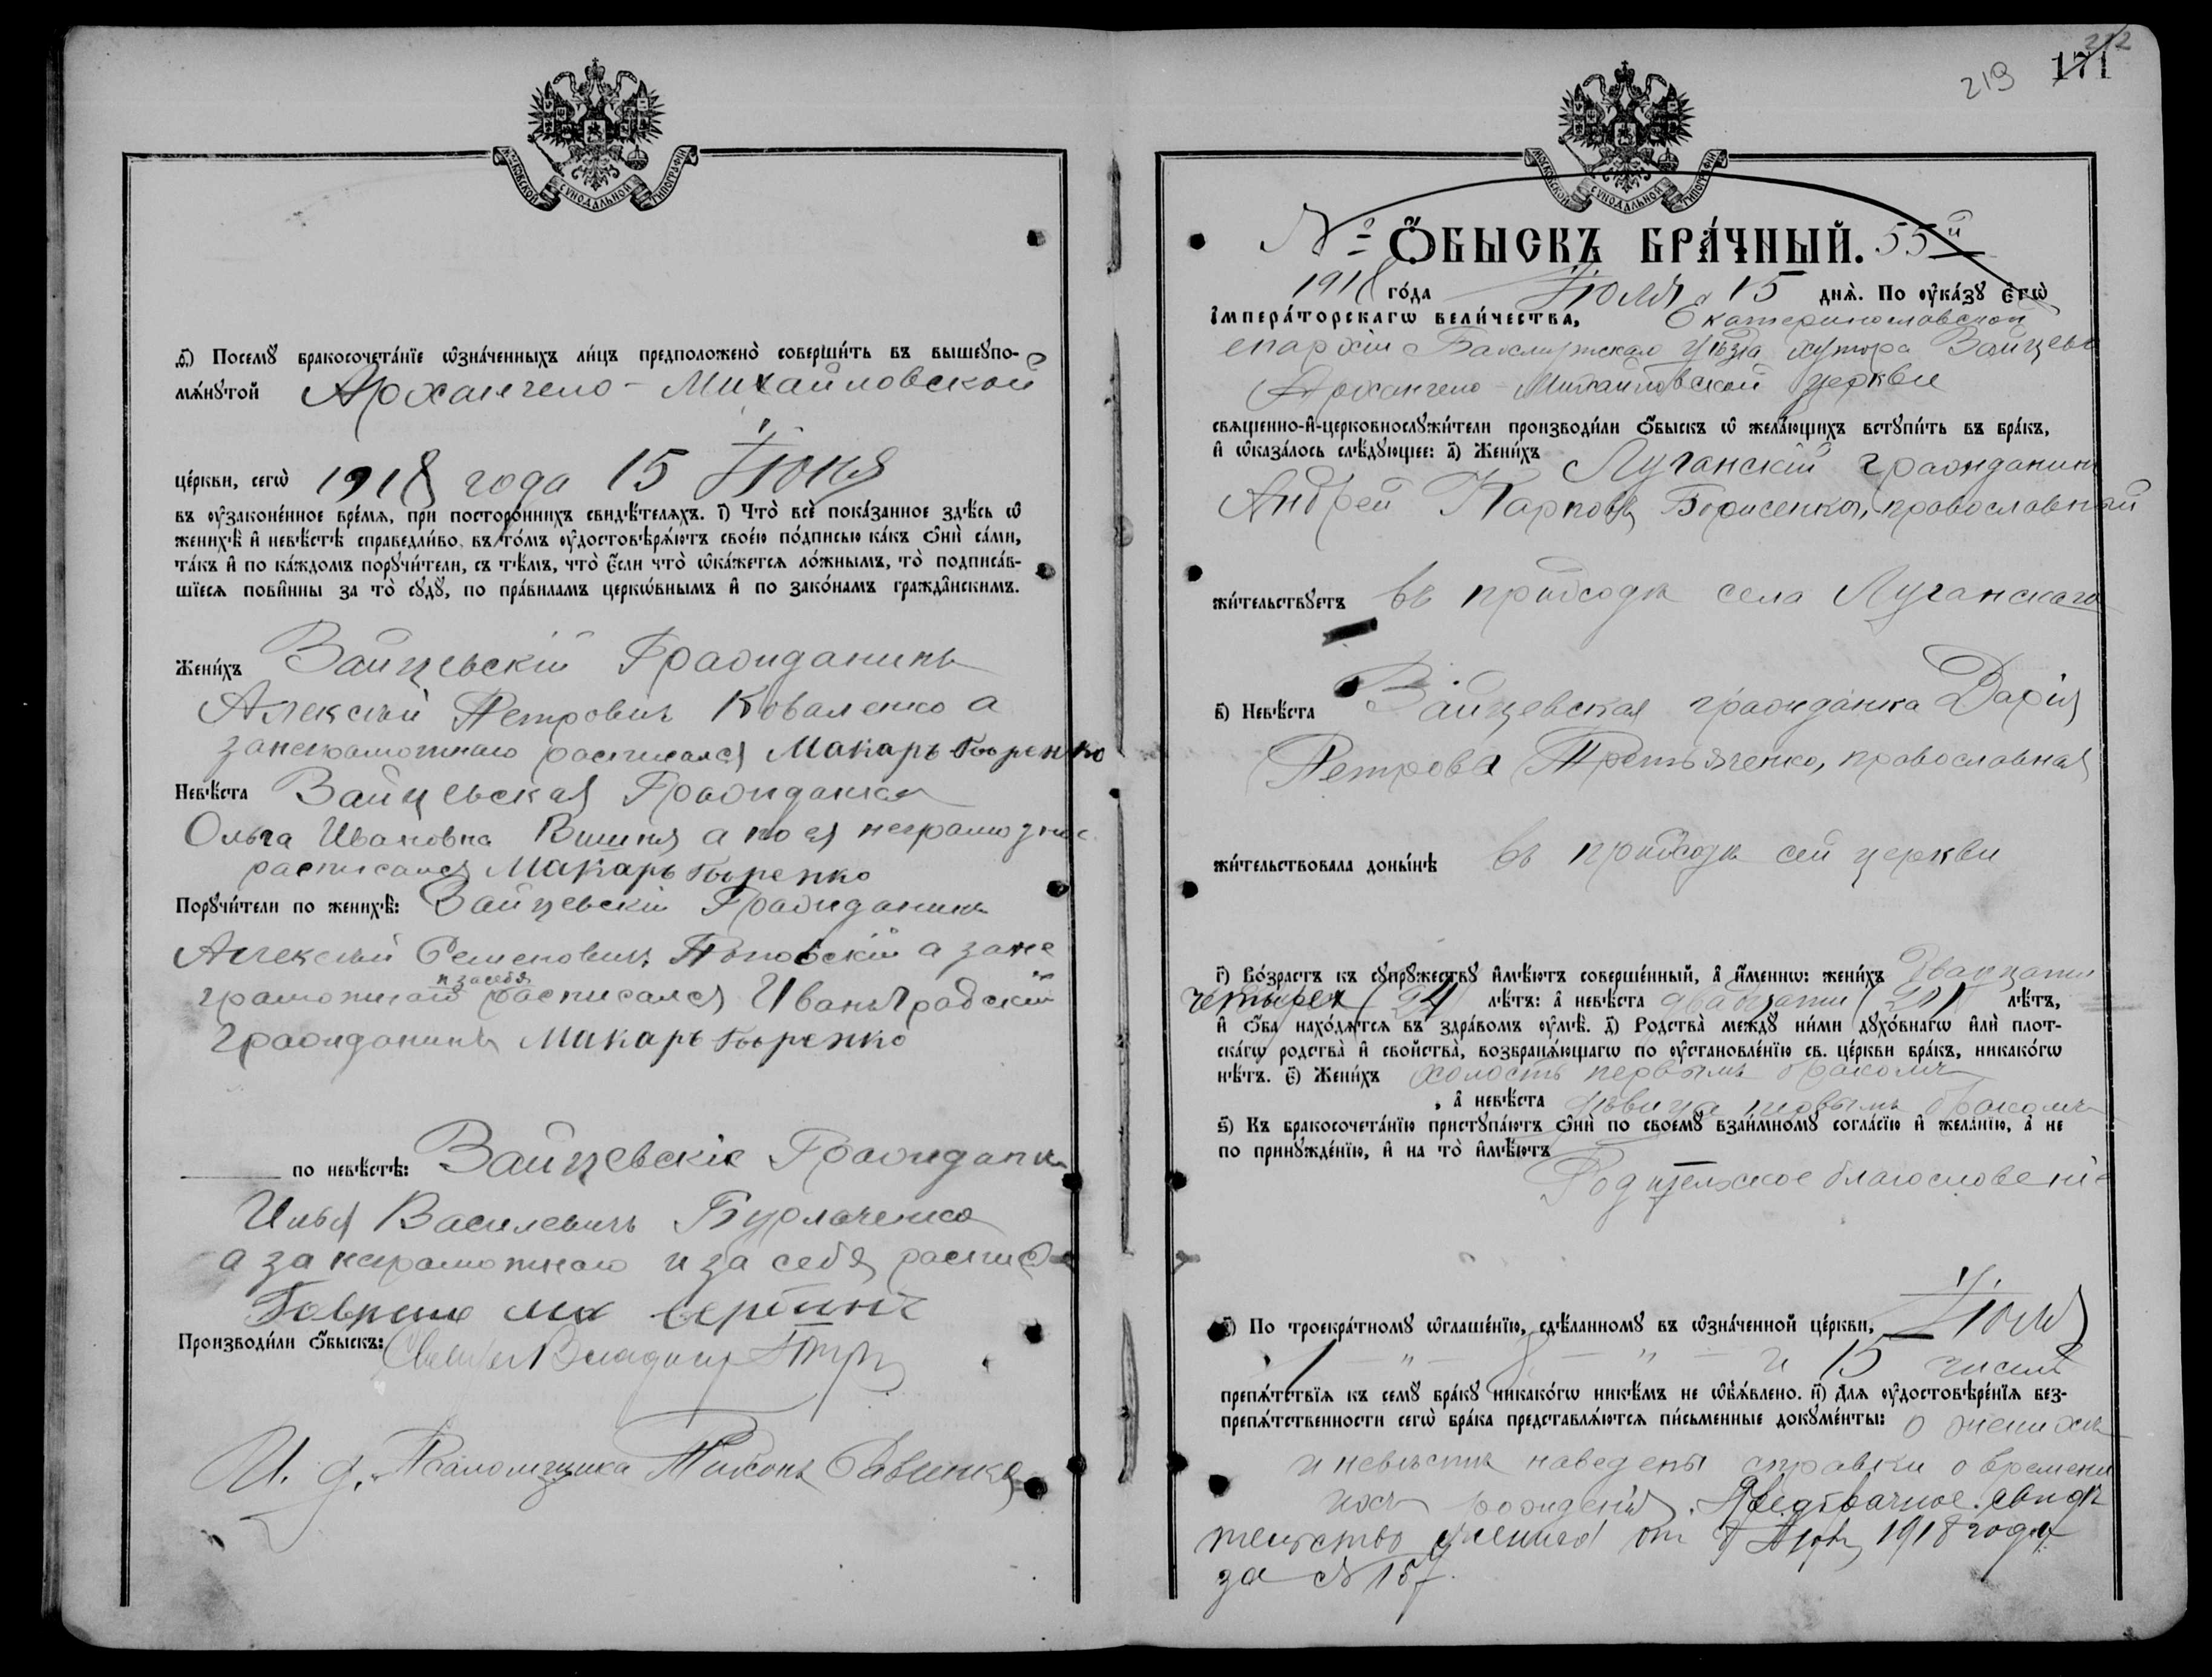 МОСКОВСКОЙ СѴНОДАЛЬНОЙ ТИПОГРАФІИ
д҃) Посемꙋ бракосочета́нїе ѡ҆зна́ченныхъ ли́цъ предположено̀ соверши́ть въ вышеꙋпо-
мѧ́нꙋтой Архангело-Михайловской
це́ркви, сегѡ̀ 1918 года 15 Іюня
въ ᲂу҆законе́нное вре́мѧ, при посторо́ннихъ свидѣ́телѧхъ. і҃) Что̀ всѐ пока́занное здѣ́сь ѡ҆
женихѣ̀ и҆ невѣ́стѣ справедли́во, въ то́мъ ᲂу҆достовѣрѧ́ютъ свое́ю по́дписью ка́къ ѻ҆нѝ са́ми,
та́къ и҆ по ка́ждомъ порꙋчи́тели, съ тѣ́мъ, что̀ є҆́сли что̀ ѡ҆ка́жетсѧ ло́жнымъ, то̀ подписа́в-
шїесѧ пови́нны за то̀ сꙋдꙋ̀, по пра́виламъ церко́внымъ и҆ по зако́намъ гражда́нскимъ.
Жени́хъ Зайцевскій Гражданинъ
Алексѣй Петровичъ Коваленко а
занеграмотнаго расписался Макаръ
Невѣ́ста Зайцевская Гражданка
Ольга Ивановна Вишня а по ея
расписался Макаръ
Порꙋчи́тели по женихѣ̀: Зайцевскій Гражданинъ
Алексѣй Семеновичъ Поповскій а зане
и за себя
грамотнаго расписался Иванъ Градскій
Гражданинъ Макаръ
по невѣ́стѣ: Зайцевскіе Граждани
Илья Василевичъ Бурлаченко
а за неграмотнаго и за себя распис
Производи́ли ѻ҆́быскъ: Владимір
И. д. Псаломщика Тихонъ Савинка
212
219 171
МОСКОВСКОЙ СѴНОДАЛЬНОЙ ТИПОГРАФІИ
№ Ѻ҆́БЫСКЪ БРА́ЧНЫЙ. 55й
1918 го́да Іюля 15 днѧ̀. По ᲂу҆ка́зꙋ Є҆гѡ̀
І҆мпера́торскагѡ вели́чества, Екатеринославской
епархіи Бахмутскаго уѣзда хутора Зайцева
Архангело-Михайловской церкви
свѧще́нно-и҆-церковнослꙋжи́тели производи́ли ѻ҆́быскъ ѡ҆ жела́ющихъ встꙋпи́ть въ бра́къ,
и҆ ѡ҆каза́лось слѣ́дꙋющее: а҃) Жени́хъ Луганскій гражданинъ
Андрей Карповъ Борисенко, православный
жи́тельствꙋетъ въ приходѣ села Луганскаго
в҃) Невѣ́ста Зайцевская гражданка Дарія
Петрова Третьяченко, православная
жи́тельствовала доны́нѣ въ приходѣ сей церкви
г҃) Во́зрастъ къ сꙋпрꙋ́жествꙋ и҆мѣ́ютъ соверше́нный, а҆ и҆́менно: жени́хъ двадцати
четырех (24) лѣ́тъ: а҆ невѣ́ста двадцати (20) лѣ́тъ,
и҆ ѻ҆́ба нахо́дѧтсѧ въ здра́вомъ ᲂу҆мѣ̀. д҃) Родства̀ ме́ждꙋ ни́ми дꙋхо́внагѡ и҆лѝ плот-
ска́гѡ родства̀ и҆ свойства̀, возбранѧ́ющагѡ по ᲂу҆становле́нїю св. це́ркви бра́къ, никако́гѡ
нѣ́тъ. є҃) Жени́хъ холостъ первымъ бракомъ
, а҆ невѣ́ста дѣвица первымъ бракомъ
ѕ҃) Къ бракосочета́нїю пристꙋпа́ютъ ѻ҆нѝ по своемꙋ̀ взаи́мномꙋ согла́сїю и҆ жела́нїю, а҆ не
по принꙋжде́нїю, и҆ на то̀ и҆мѣ́ютъ
Родительское благословеніе
з҃) По троекра́тномꙋ ѡ҆глаше́нїю, сдѣ́ланномꙋ въ ѡ҆зна́ченной це́ркви, Іюля
1 — " — 8 — " — и 15 чиселъ
препѧ́тствїѧ къ семꙋ̀ бра́кꙋ никако́гѡ никѣ́мъ не ѡ҆б̾ѧ́влено. и҃) Длѧ ᲂу҆достовѣре́нїѧ без-
препѧ́тственности сегѡ̀ бра́ка представлѧ́ютсѧ пи́сьменные докꙋме́нты: о женихѣ
и невѣстѣ наведены справки о времени
ихъ рожденія. Предбрачное свидѣ
тельство жениха от 1918 года
за № 157.